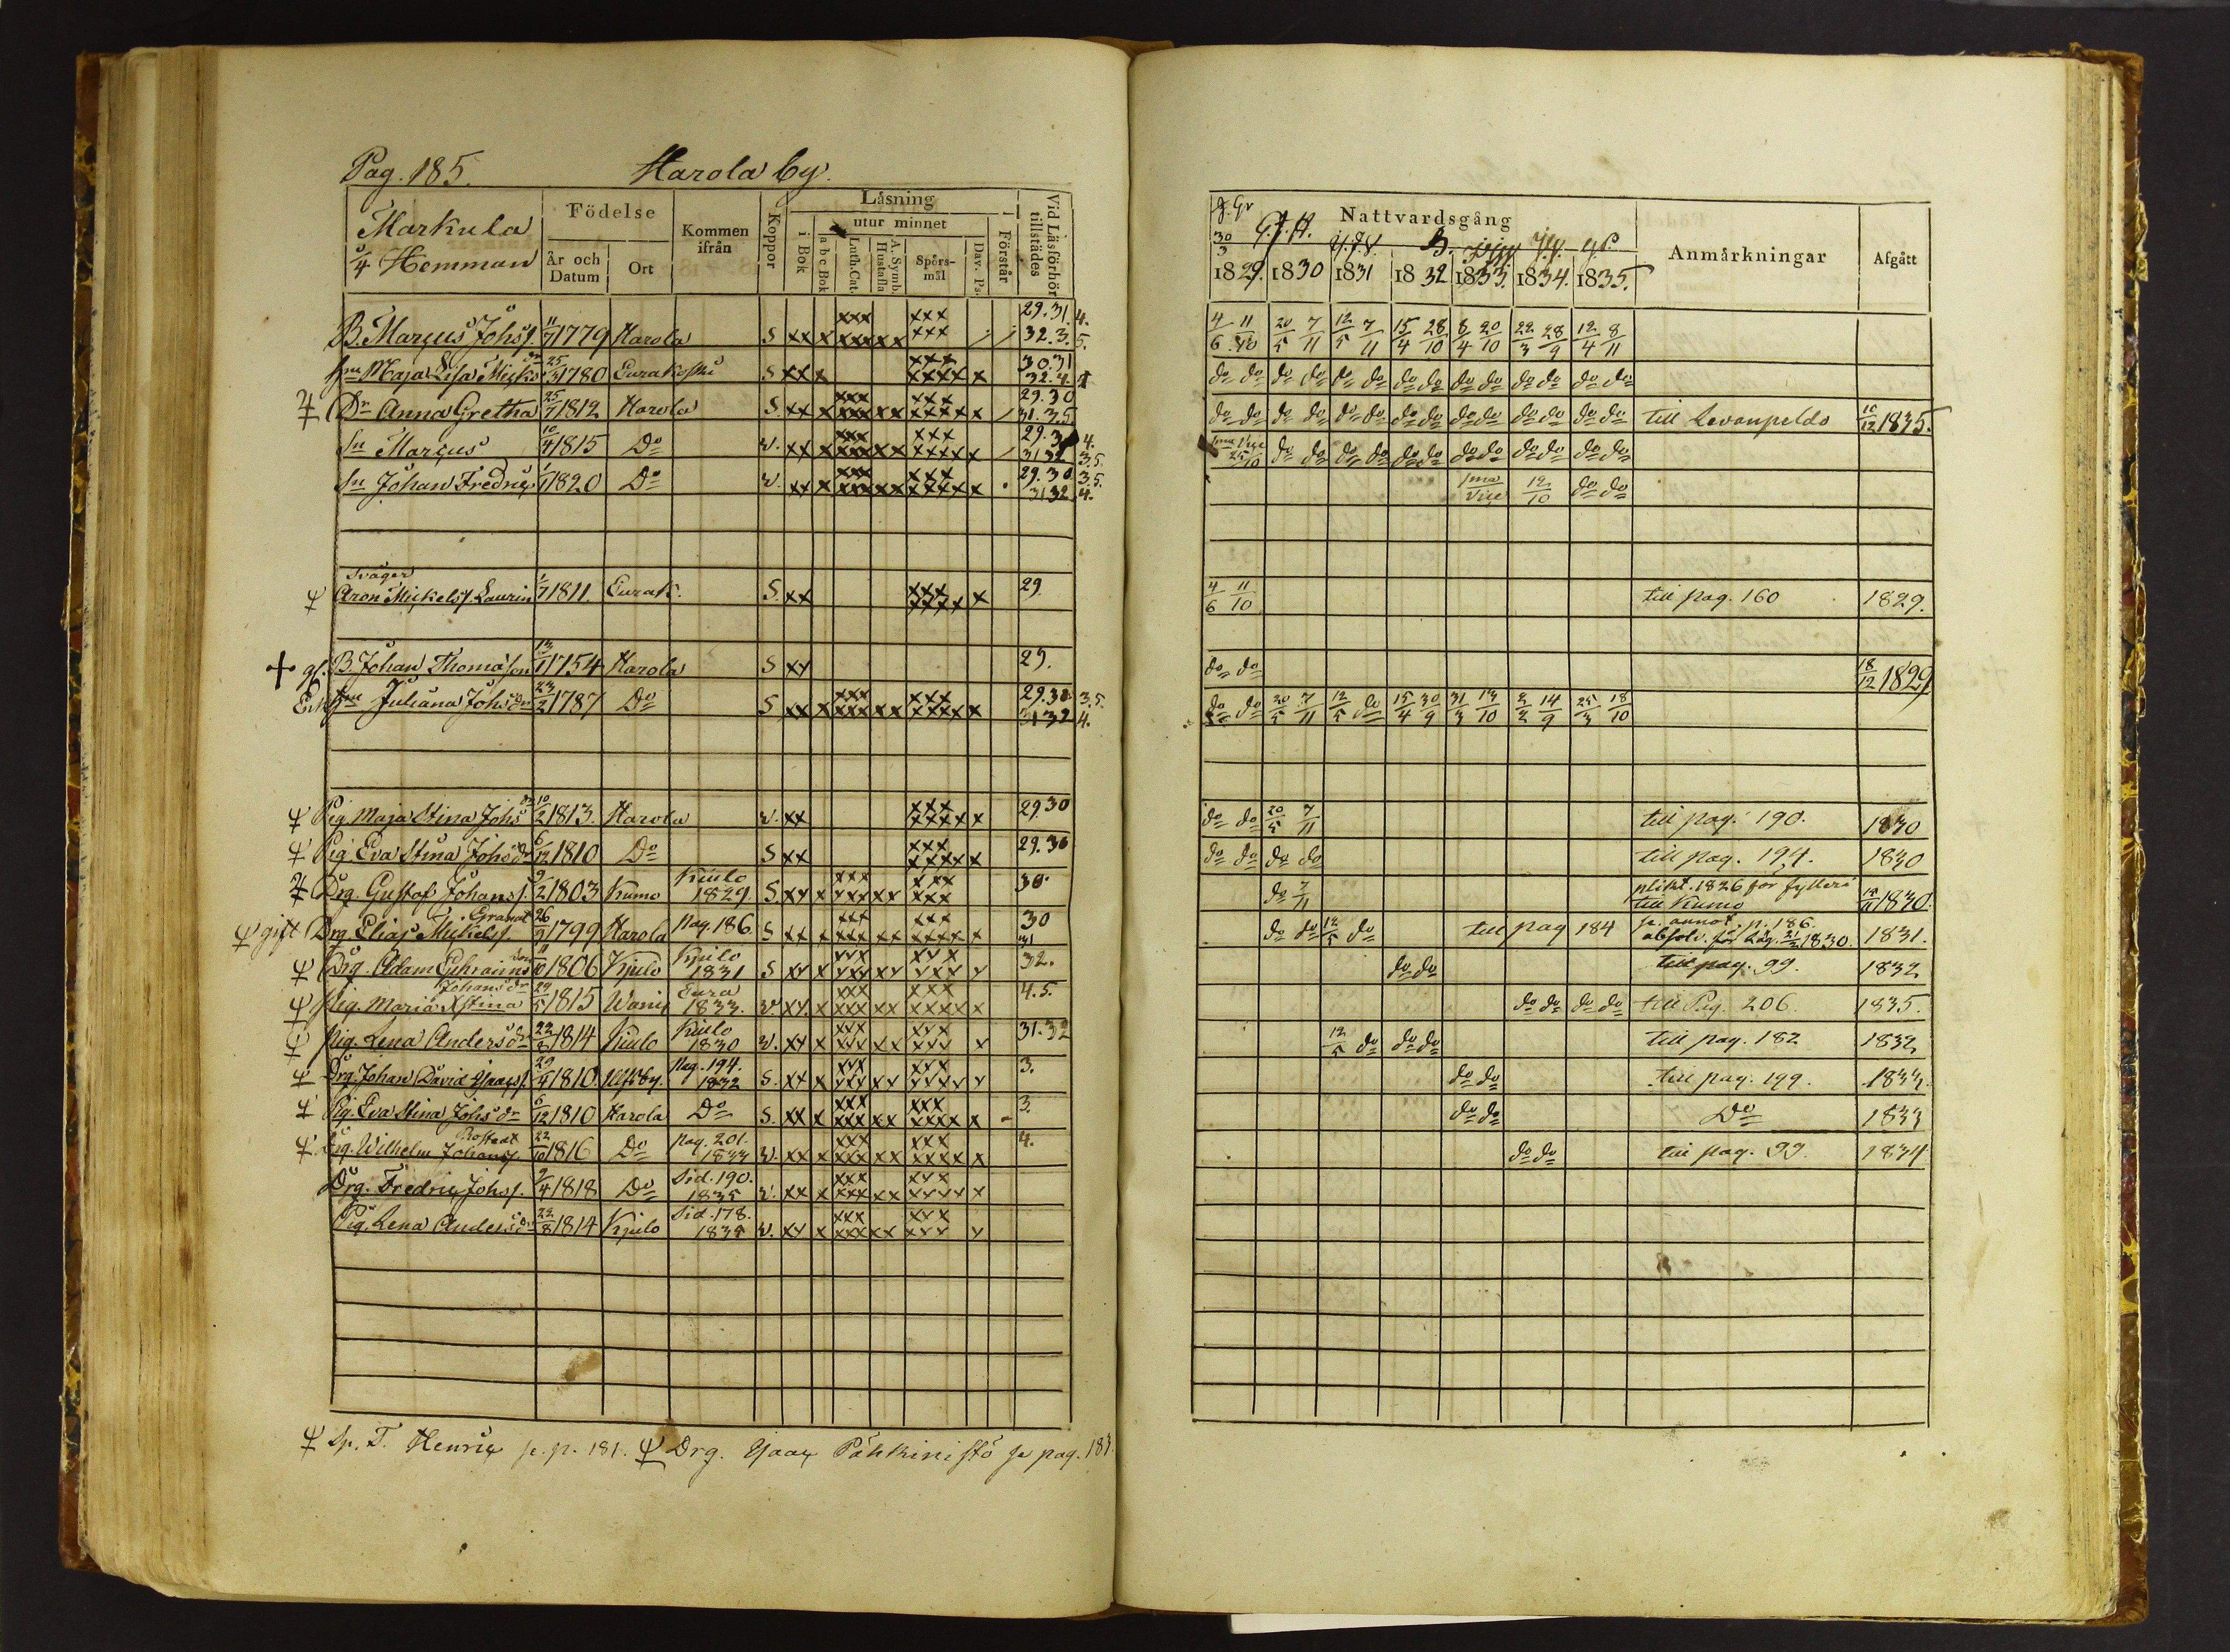 Pag. 185. Harola by.
Markula
5/4 Hemman
Födelse
År och Datum
Ort
Kommen ifrån
Koppor
Läsning
i Bok
utur minnet
a b c Bok
Luth. Cat.
A. Symb. Hustafla
Spörsmål
Dav. Ps.
Förstår
Vid Läsförhör tillstädes
B. Marcus Johs s. 11/7 1779 Harola S xx x xxx xxxxx xx xxx xxx / / 29. 31. 4. 32. 3. 5.
hu Maja Lisa Mick dr 25/3 1780 Eurakoski S xx x xxx xxxx x 30 31 32. 4.
Dr Anna Gretha 25/7 1812 Harola S. xx x xxx xxx xx xxx xxxx x / 29. 30 31. 3. 5.
Sn Marcus 10/4 1815 Do v. xx x xxx xxx xx xxx xxxx x / 29. 3 4. 31 32 3. 5.
Sn Johan Fredric 1/1 1820 Do v. xx x xxx xxx xx xxx xxxx x . 29. 30 3. 5. 31 32 4.
Svåger
Aron Mickels s. Laurin 1/7 1811. Eurak. S. xx xxx xxxx x 29.
+ gl. B. Johan Thomasson 13/1 1754 Harola S xx 29.
Enk hu Juliana Johs dr 23/2 1787 Do S xx x xxx xxx xx xxx xxxx x 29. 30 3. 5. 31 32 4.
Pig Maja Stina Johs dr 10/2 1813. Harola v. xx xxx xxxx x 29. 30
Pig Eva Stina Johs dr 6/12 1810 Do S xx xxx xxxx x 29. 30
Drg. Gustaf Johans s. 9/2 1803 Kumo Kiulo 1829. S xx x xxx xxx xx xxx xxx 30
gift Drg. Elias Mickels s. Granat 26/9 1799 Harola Pag. 186. S xx x xxx xxx xx xxx xxxx x 30 31
Drg. Adam Ephraims son 11/10 1806 Kjulo Kjulo 1831 S xx x xxx xxx xx xxx xxx x 32.
Pig. Maria Xstina Johans dr 29/5 1815 Eura 1833. v. xx x xxx xxx xx xxx xxxx x 4. 5.
Pig. Lena Anders dr 22/8 1814 Kiulo Kiulo 1830 v. xx x xxx xxx xx xxx xxx x 31. 32
Drg. Johan David Isaacs s. 29/4 1810 Ulfsby. Pag. 194. 1832 S. xx x xxx xxx xx xxx xxxx x 3.
Pig. Eva Stina Johs dr 6/12 1810 Harola Do S. xx x xxx xxx xx xxx xxxx x - 3.
Drg. Wilhelm Johans s. Rostedt 22/10 1816 Do pag. 201. 1833 v. xx x xxx xxx xx xxx xxxx x 4.
Drg. Fredric Johs s. 9/4 1818 Do Sid. 190. 1835 v. xx x xxx xxx xx xxx xxxx x
Pig. Lena Anders dr 22/8 1814 Kjulo Sid. 178. 1835 v. xx x xxx xxx xx xxx xxx x
Sp. T. Henric se. p. 181. Drg. Isaac Pähkinistö se pag. 183.
Nattvardsgång
Anmärkningar
Afgått
30/3
1829. 1830 1831 1832 1833. 1834. 1835.
4/6 11/10 20/5 7/11 12/5 7/11 15/4 28/10 8/4 20/10 22/3 28/9 12/4 8/11
do do do do do do do do do do do do do do
do do do do do do do do do do do do do do till Levanpeldo 10/12 1835.
1ma vice 25/10 do do do do do do do do do do do do
1ma vice 12/10 do do
4/6 11/10 till pag. 160 1829.
do do 18/12 1829
do do 20/5 7/11 12/5 do 15/4 30/9 31/3 13/10 2/2 14/9 25/3 18/10
do do 20/5 7/11 till pag. 190. 1830
do do do do till pag. 194. 1830
do 7/11 plikt. 1826 för fylleri till Kumo 14/11 1830.
do do 12/5 do till pag 184 se. annot. p. 186. absolv. för läg. 21/2 1830. 1831.
do do till pag. 99. 1832
do do do do till Pag. 206. 1835.
12/5 do do do till pag. 182 1832
do do till pag. 199. 1833.
do do Do 1833
do do till pag. 99. 1834